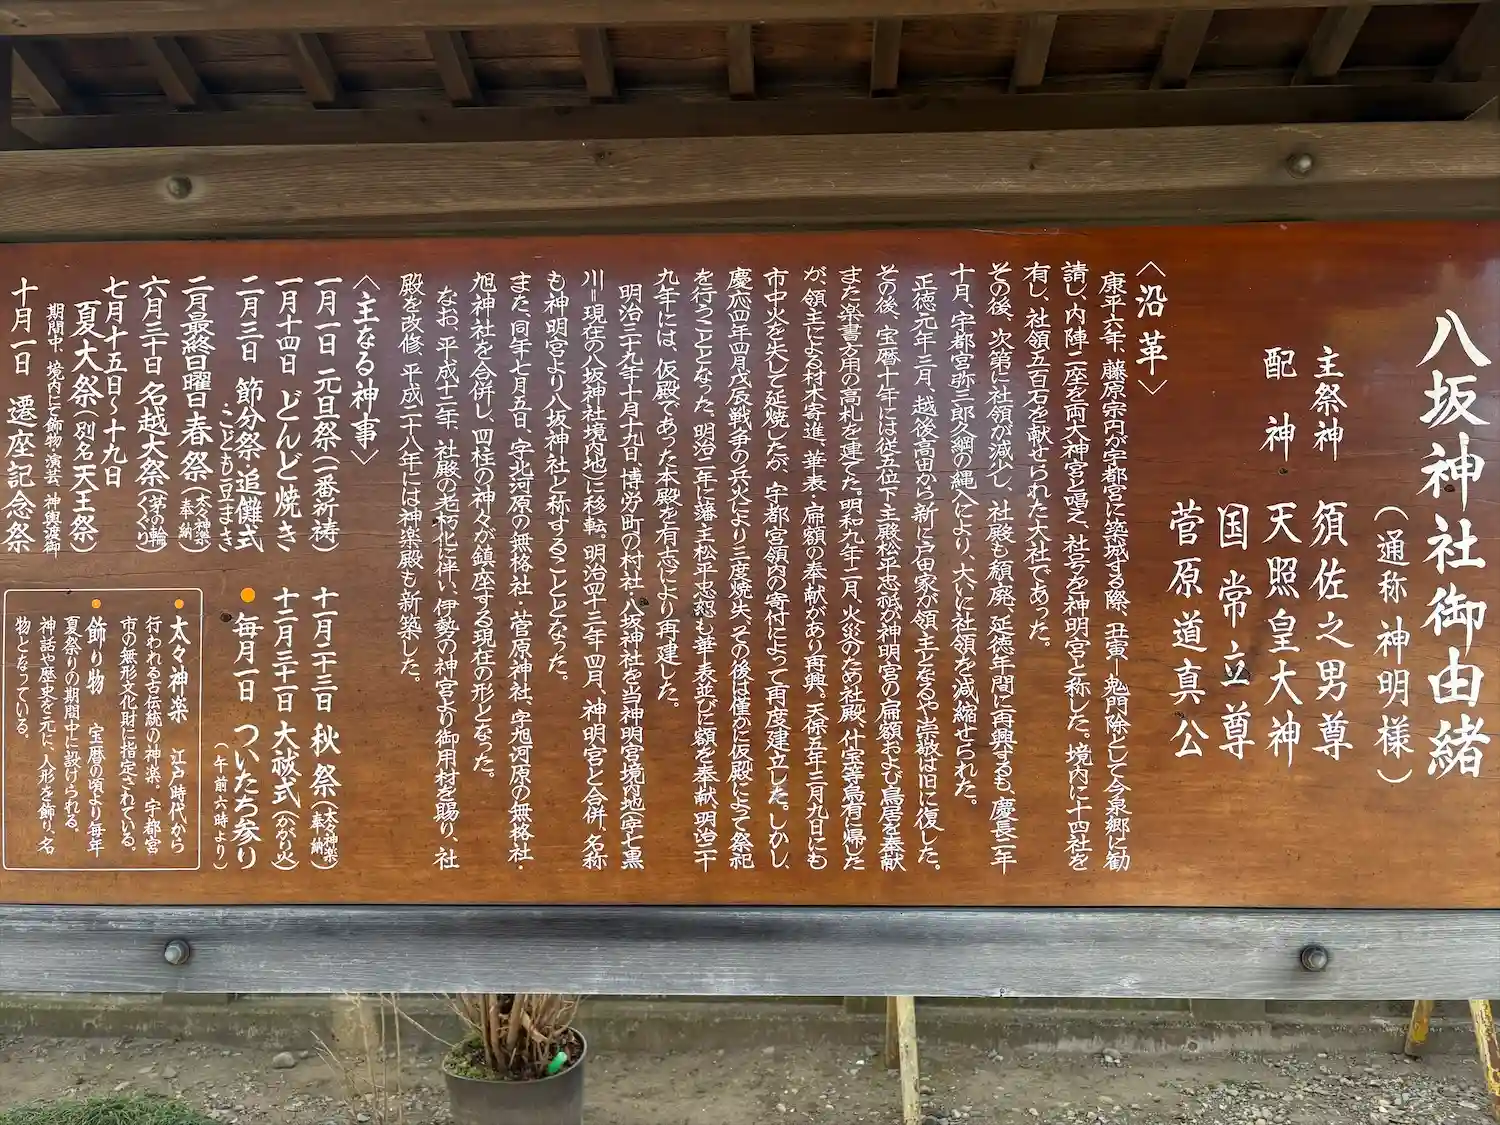 八坂神社御由緒
(通称 神明様)
主祭神 須佐之男尊
配神 天照皇大神
国常立尊
菅原道真公
〈沿革〉
康平六年、藤原宗円が宇都宮に築城する際、丑寅＝鬼門除として今泉郷に勧
請し、内陣二座を両大神宮と唱え、社号を神明宮と称した。境内に十四社を
有し、社領五百石を献せられた大社であった。
その後、次第に社領が減少し、社殿も頽廃、延徳年間に再興するも、慶長二年
十月、宇都宮弥三郎久綱の縄入により、大いに社領を減縮せられた。
正徳元年三月、越後高田から新に戸田家が領主となるや崇敬は旧に復した。
その後、宝暦十年には従五位下主殿松平忠祇が神明宮の扁額および鳥居を奉献
また楽書方用の高札を建てた。明和九年二月、火災のため社殿、什宝等烏有に帰した
が、領主による材木寄進、華表・扁額の奉献があり再興。天保五年三月九日にも
市中火を失して延焼したが、宇都宮領内の寄付によって再度建立した。しかし、
慶応四年四月戊辰戦争の兵火により三度焼失、その後は僅かに仮殿によって祭祀
を行うこととなった。明治二年に藩主松平忠恕も華表並びに額を奉献、明治二十
九年には、仮殿であった本殿を有志により再建した。
明治三九年十月十九日、博労町の村社・八坂神社を当神明宮境内地(字七黒
川＝現在の八坂神社境内地)に移転。明治四十三年四月、神明宮と合併、名称
も神明宮より八坂神社と称することとなった。
また、同年七月五日、字北河原の無格社・菅原神社、字旭河原の無格社・
旭神社を合併し、四柱の神々が鎮座する現在の形となった。
なお、平成十二年、社殿の老朽化に伴い、伊勢の神宮より御用材を賜り、社
殿を改修、平成二十八年には神楽殿も新築した。
〈主なる神事〉
一月一日 元旦祭(一番祈祷)
一月十四日 どんど焼き
二月三日 節分祭・追儺式
・こども豆まき
二月最終日曜日 春祭(太々神楽奉納)
六月三十日 名越大祭(茅の輪くぐり)
七月十五日～十九日
夏大祭(別名天王祭)
期間中、境内にて飾物・演芸 神輿渡御
十月一日 遷座記念祭
十一月二十三日 秋祭(太々神楽奉納)
十二月三十一日 大祓式(かがり火)
●毎月一日 ついたち参り
(午前六時より)
●太々神楽 江戸時代から
行われる古伝統の神楽。宇都宮
市の無形文化財に指定されている。
●飾り物 宝暦の頃より毎年
夏祭りの期間中に設けられる。
神話や歴史を元に、人形を飾り、名
物となっている。